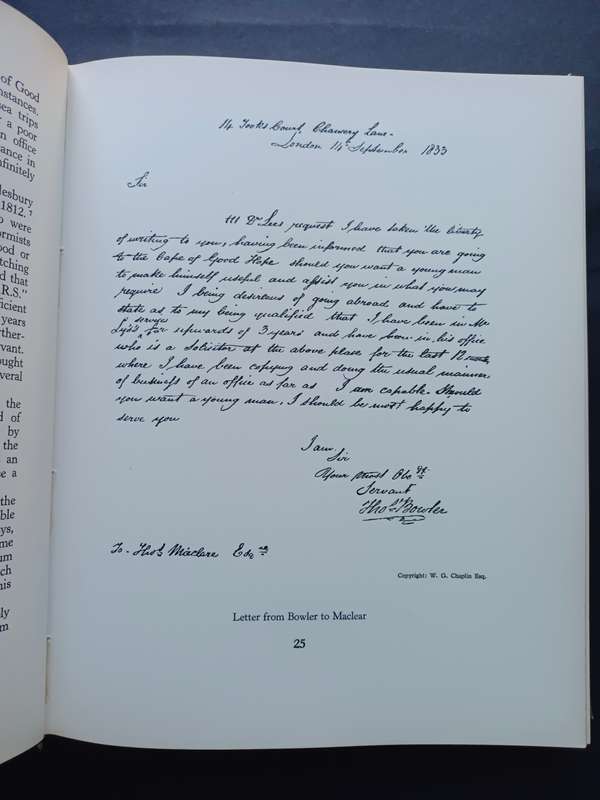 of Good
nstances.
sea trips
a poor
n office
ance in
finitely
lesbury
1812.⁷
o were
ormists
ood or
tching
d that
R.S."
ficient
years
rther-
vant.
ought
everal
the
d of
by
the
an
e a
the
ble
ys,
me
um
ch
his
ly
m
14 Tooks Court, Chancery Lane -
London 14 September 1833
Sir
At Dr Lees request I have taken the liberty
of writing to you, having been informed that you are going
to the Cape of Good Hope should you want a young man
to make himself useful and assist you in what you may
require I being desirous of going abroad and have to
state as to my being qualified that I have been in Mr
service
for upwards of 3 years and have been in his office
who is a Solicitor at the above place for the last 12
where I have been copying and doing the usual manner
of business of an office as far as I am capable. Should
you want a young man, I should be most happy to
serve you
I am
Sir
Your most Obt
Servant
Thos Bowler
To - Thos Maclare Esq
Copyright: W. G. Chaplin Esq.
Letter from Bowler to Maclear
25